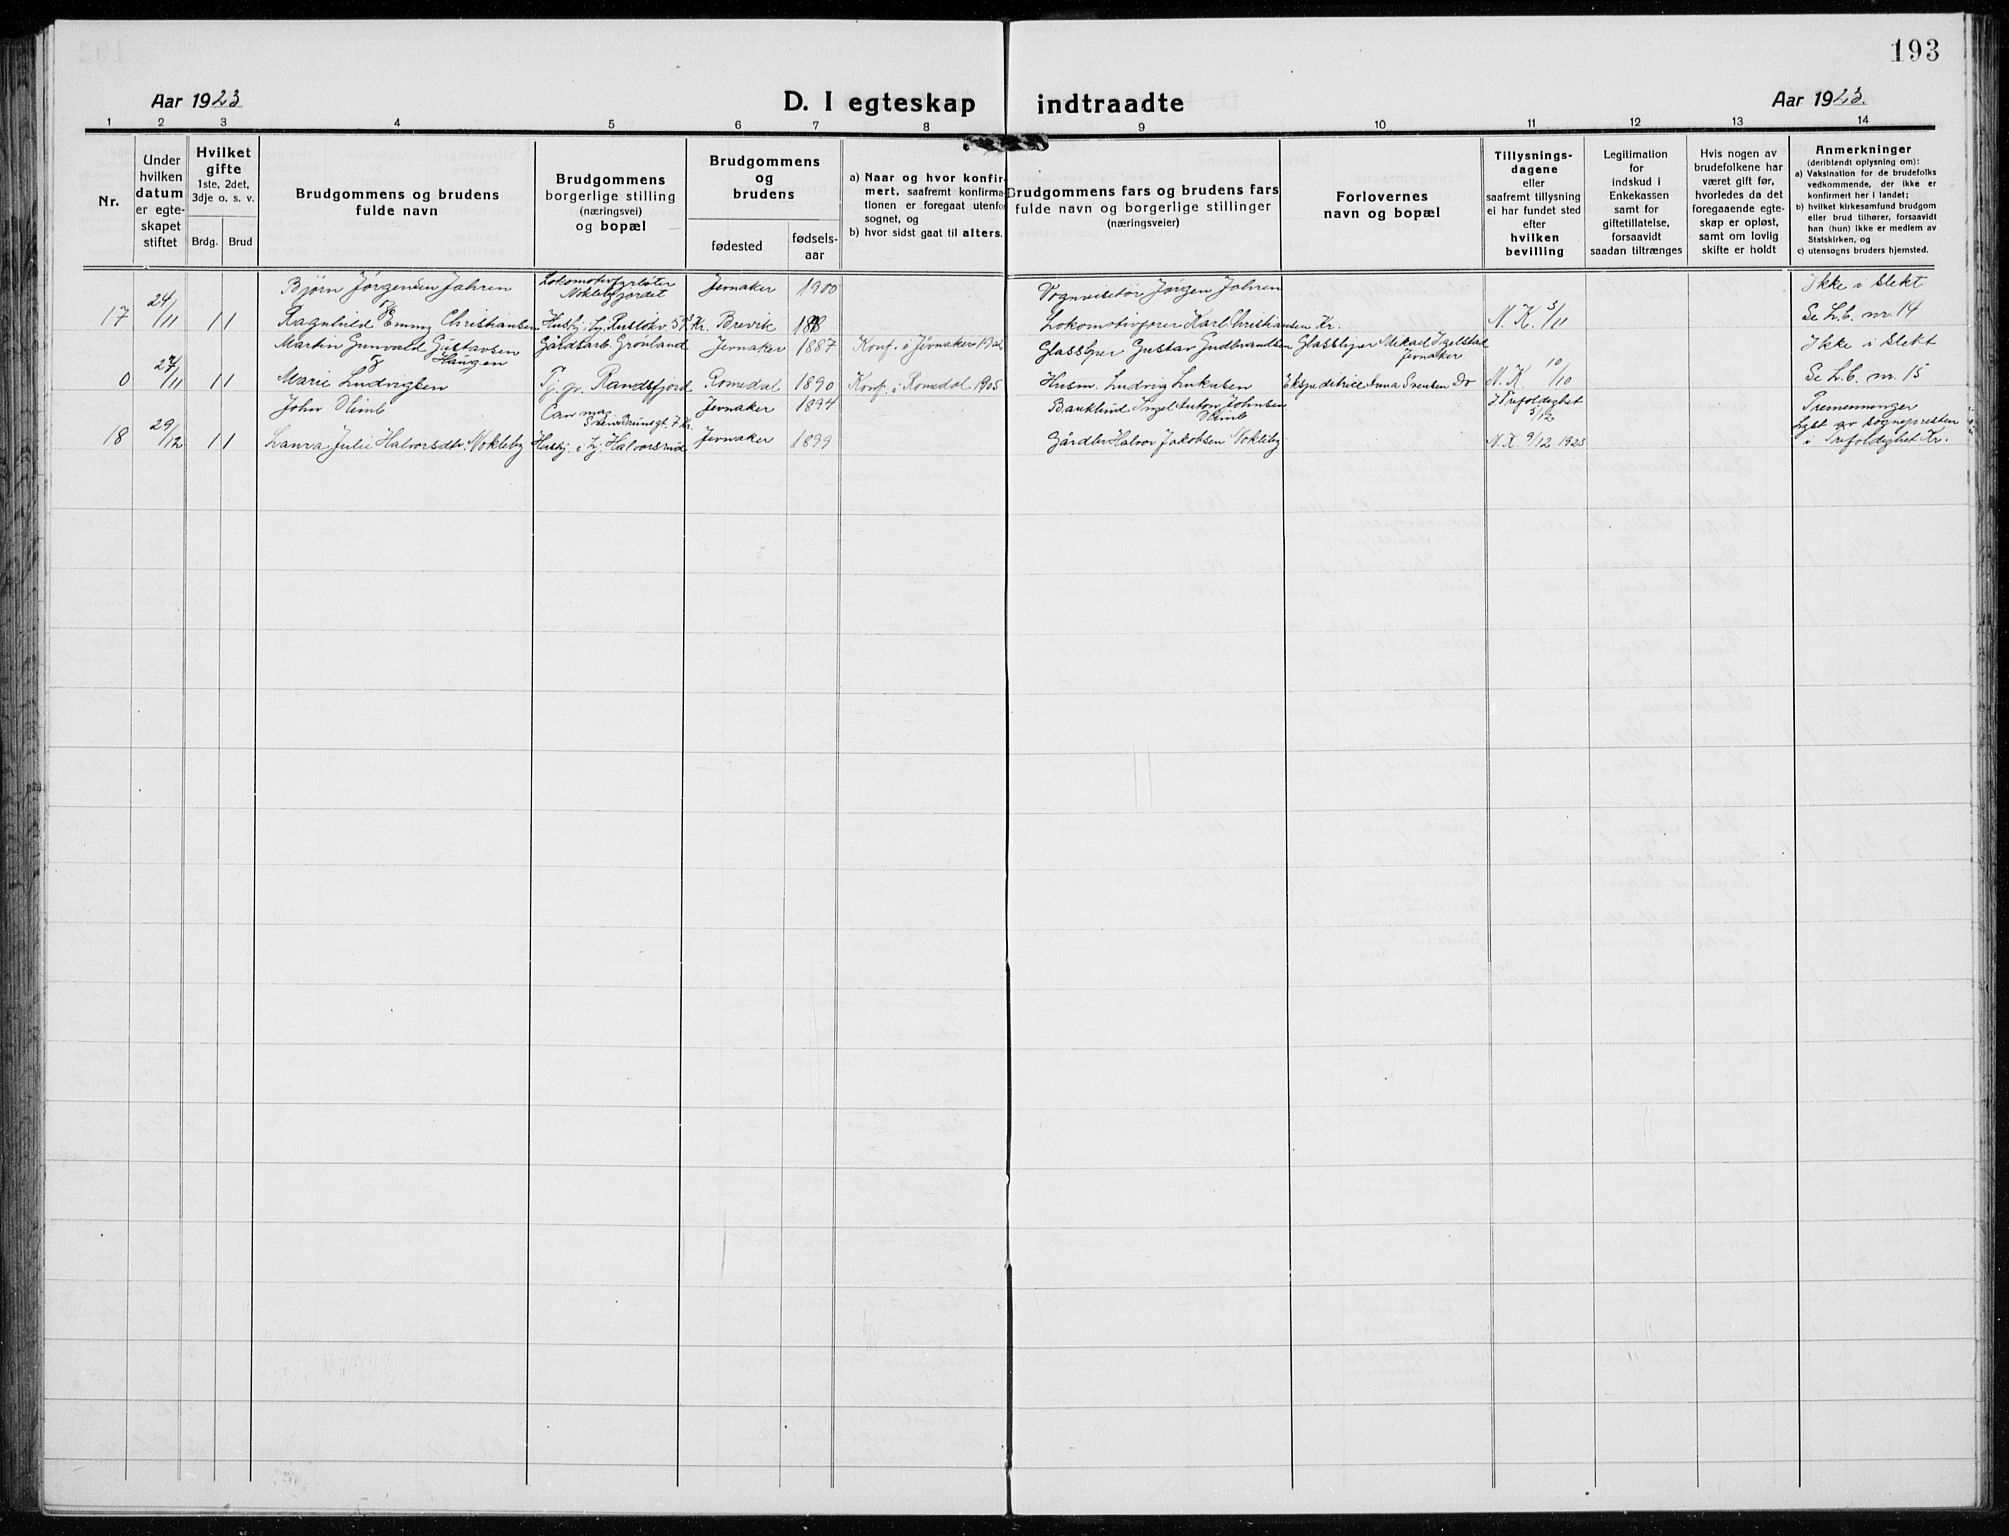 193
Aar 1923
D. I egteskap indtraadte
Aar 1923.
1 2 3 4 5 6 7 8 9 10 11 12 13 14
Nr.
Under hvilken datum er egteskapet stiftet
Hvilket gifte 1ste, 2det, 3dje o. s. v.
Brdg. Brud
Brudgommens og brudens fulde navn
Brudgommens borgerlige stilling (næringsvei) og bopæl
Brudgommens og brudens
fødested
fødsels-aar
a) Naar og hvor konfirmert, saafremt konfirmationen er foregaat utenfor sognet, og
b) hvor sidst gaat til alters.
Brudgommens fars og brudens fars fulde navn og borgerlige stillinger (næringsveier)
Forlovernes navn og bopæl
Tillysnings-dagene eller saafremt tillysning ei har fundet sted efter hvilken bevilling
Legitimation for indskud i Enkekassen samt for giftetillatelse, forsaavidt saadan tiltrænges
Hvis nogen av brudefolkene har været gift før, hvorledes da det foregaaende egteskap er opløst, samt om lovlig skifte er holdt
Anmerkninger (deriblandt oplysning om):
a) Vaksination for de brudefolks vedkommende, der ikke er konfirmert her i landet;
b) hvilket kirkesamfund brudgom eller brud tilhører, forsaavidt han (hun) ikke er medlem av Statskirken, og
c) utensogns bruders hjemsted.
Bjørn Jørgensen Jahren Lokomotivfyrbøter Jevnaker 1900 Vognvisitør Jørgen Jahren Ikke i slekt
17 24/11 1 1 Ragnhild Emmy Christiansen Kr. Brevik Lokomotivfører Karl Christiansen Kr. N. K. 3/11 Se L.b. nr. 14
Martin Gunvald Gustavsen Haugen Gårdsarb. Grønland Jevnaker 1887 Konf. i Jevnaker Gustav Gudbrandsen Jevnaker Ikke i slekt
0 27/11 1 1 Marie Ludvigsen Tj. p. Randsfjord Romedal 1890 Konf. i Romedal 1905 Husm. Ludvig Ekspeditrice Anna Svensen Do N. K. 10 Se L.b. nr. 15
John Jevnaker 1894 Anton Johnsen I Trefoldighet /12 Tremenninger
18 29/12 1 1 Laura Julie Halvorsdtr. Møkleby Husbj. i Lj. Halvorsrud Jevnaker 1899 Gårdbr. Halvor Jakobsen Møkleby N. K. 9/12 1923 Lyst av sognepresten i Trefoldighet Kr.